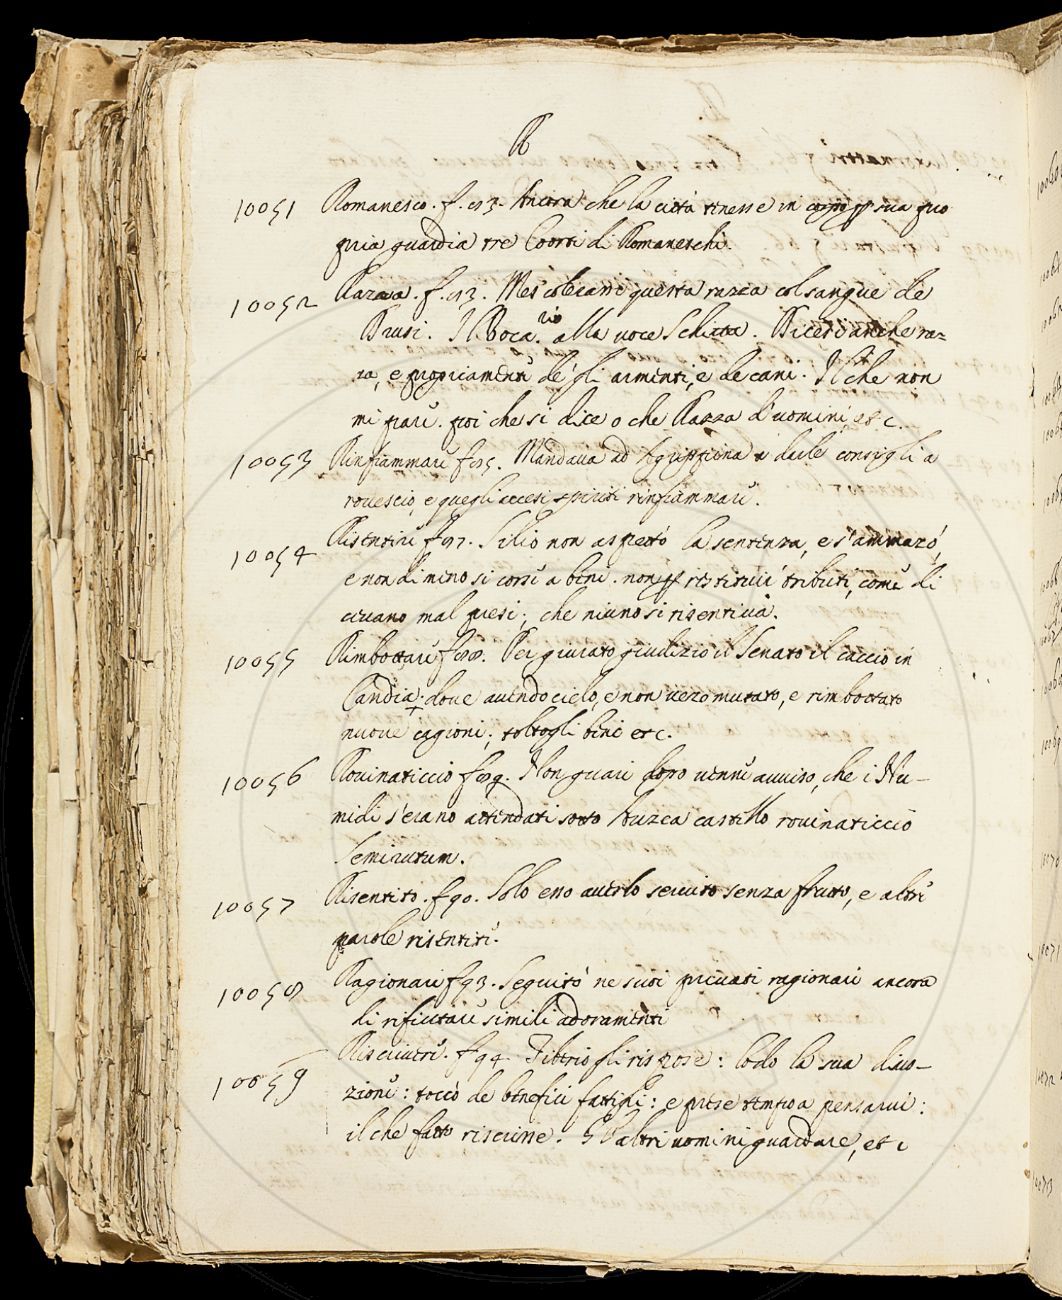 R
10051 Romanesco. f. 83. Ancora che la città tenesse in corpo p sua pro
pria guardia tre Coorti di Romaneschi.
10052 Razza. f. 83. Mescolerami questa razza col sangue de
Drusi. Il Vocario alla voce Schiatta. Dicesi anche raz-
za, e propriamente de gli armenti, e de cani. Il che non
mi pare. poi che si dice o che Razza d'uomini, et c.
10053 Rinfiammare f 85. Mandava ad Agrippina a darle consigli a
rovescio, e quegli accesi spiriti rinfiammare.
10054 Risentire f 87. Silio non aspettò la sentenza, e s'ammazò,
e non di meno si corse a beni. non p restituire tributi, come di
cevano mal presi; che niuno si risentiva.
10055 Rimbottare f 88. Per giurato giudizio il Senato il cacciò in
Candia: dove avendo cielo, e non vezo mutato, e rimbottato
nuove cagioni; toltogli beni et c.
10056 Rovinaticcio f 89. Non guari dopo venne avviso, che i Nu-
midi s'erano attendati sotto Auzea castello rovinaticcio
Semirutum.
10057 Risentito. f 90. Solo esso averlo servito senza frutto, e altre
parole risentite.
10058 Ragionare f 93. Seguitò ne suoi privati ragionari ancora
di rifiutare simili adoramenti
10059 Riscrivere. f 94. Tiberio gli rispose: lodò la sua divo-
zione: toccò de benefici fattigli: e prese tempo a pensarvi:
il che fatto riscrisse. Gli altri uomini guardare, et c